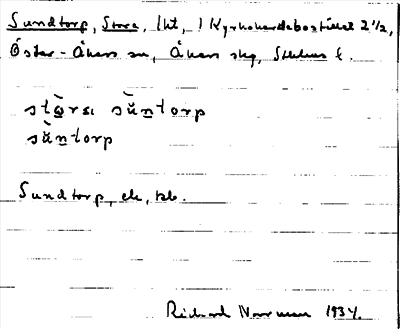 Sundtorp, Stora, lht, i Kyrkoherdebostället 2 1/2,
Öster-Åkers sn, Åkers skg, Sthlms l.
stòra sùntorp
sùntorp
Sundtorp, ek, kb.
Richard Norrman 1934.